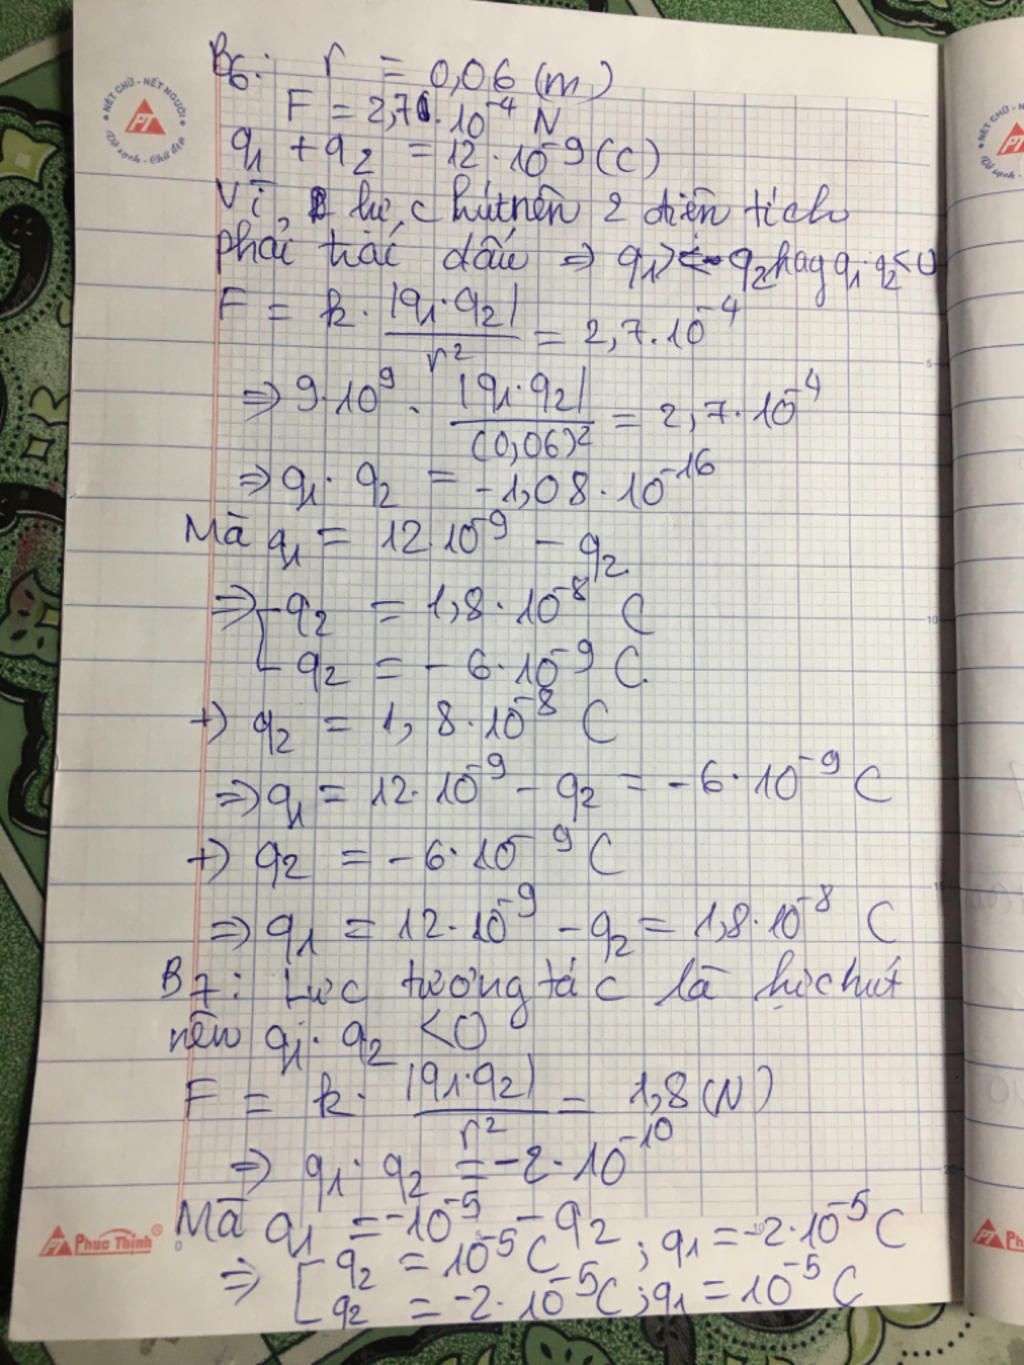 NÉT CHỮ - NẾT NGƯỜI
PT
B6: r = 0,06 (m)
F = 2,7.10⁻⁴ N
q₁ + q₂ = 12.10⁻⁹ (C)
Vì lực hút nên 2 điện tích
phải trái dấu ⇒ q₂ hay q₁.q₂<0
F = k. |q₁.q₂| / r² = 2,7.10⁻⁴
⇒ 9.10⁹. |q₁.q₂| / (0,06)² = 2,7.10⁻⁴
⇒ q₁. q₂ = -1,08.10⁻¹⁶
Mà q₁ = 12.10⁻⁹ - q₂
⇒ [ q₂ = 1,8.10⁻⁸ C
q₂ = -6.10⁻⁹ C.
+) q₂ = 1,8.10⁻⁸ C
⇒ q₁ = 12.10⁻⁹ - q₂ = -6.10⁻⁹ C
+) q₂ = -6.10⁻⁹ C
⇒ q₁ = 12.10⁻⁹ - q₂ = 1,8.10⁻⁸ C
B7: Lực tương tác là lực hút
nên q₁. q₂ <0
F = k. |q₁.q₂| / r² = 1,8 (N)
⇒ q₁. q₂ = -2.10⁻¹⁰
Mà q₁ = -10⁻⁵ - q₂
⇒ [ q₂ = 10⁻⁵ C ; q₁ = -2.10⁻⁵ C
q₂ = -2.10⁻⁵ C ; q₁ = 10⁻⁵ C
Phuc Thinh®